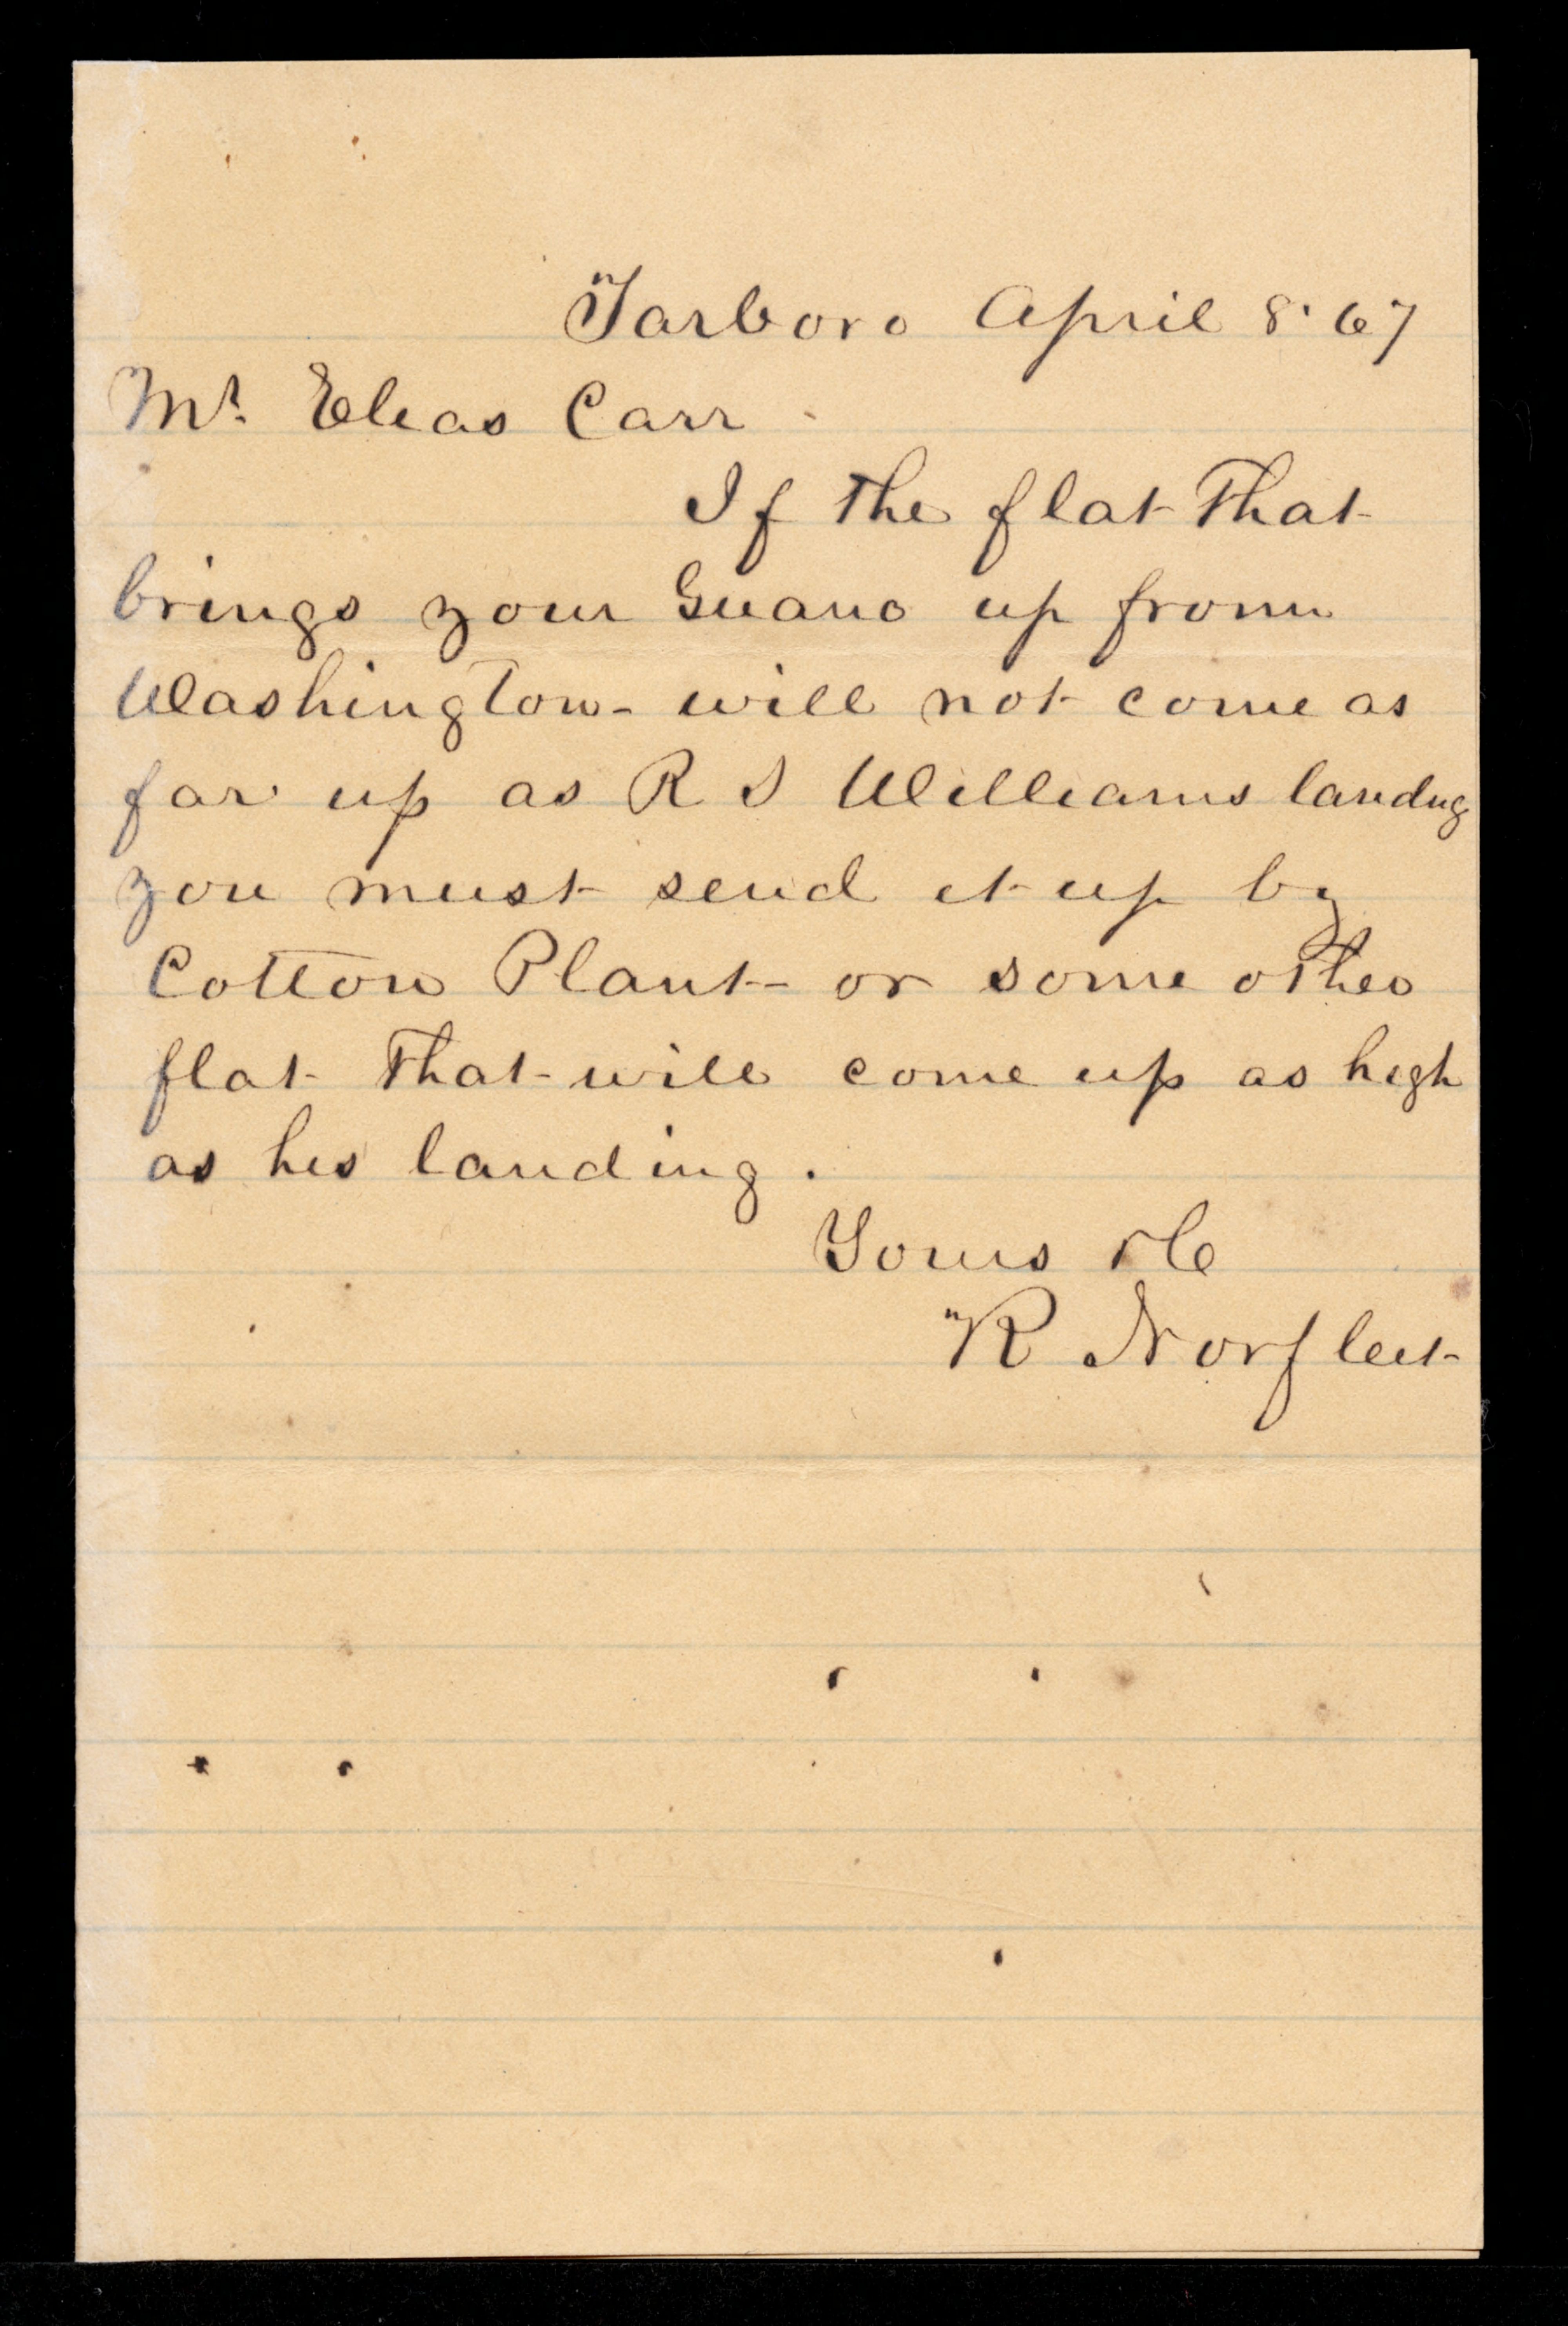 Tarboro April 8' 67
Mr. Elias Carr
If the flat that
brings your Guano up from
Washington - will not come as
far up as R S Williams landng
you must send it up by
Cotton Plant - or some other
flat that will come up as high
as his landing.
Yours &c
R Norfleet